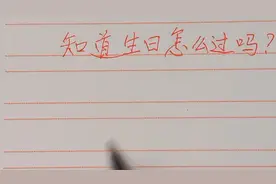 知道生日怎么过吗?